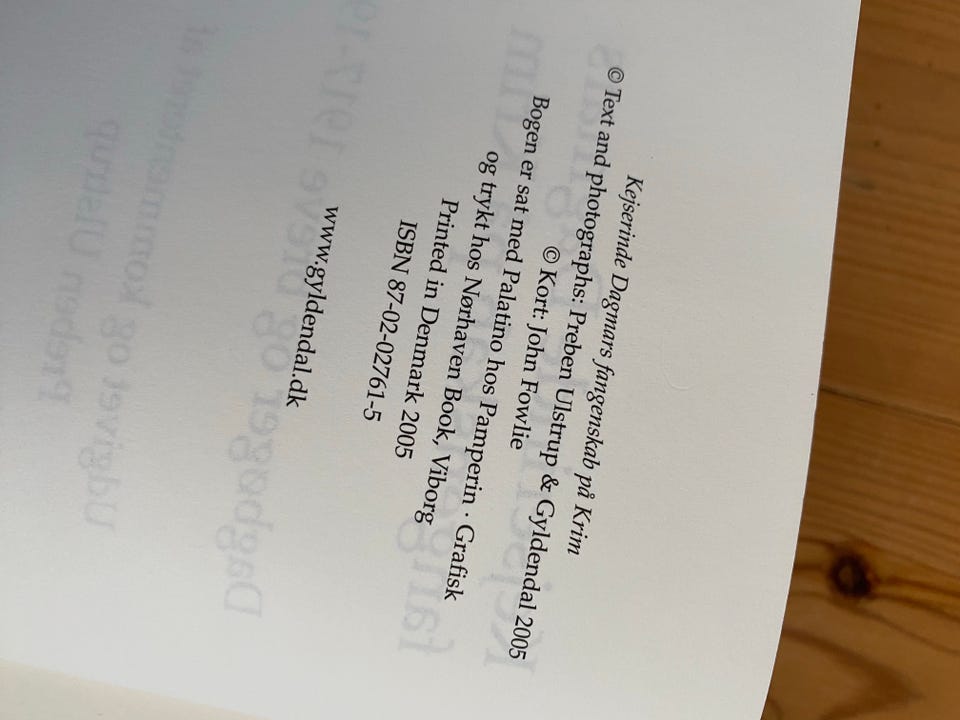 Kejserinde Dagmars fangenskab på Krim
© Text and photographs: Preben Ulstrup & Gyldendal 2005
© Kort: John Fowlie
Bogen er sat med Palatino hos Pamperin · Grafisk
og trykt hos Nørhaven Book, Viborg
Printed in Denmark 2005
ISBN 87-02-02761-5
www.gyldendal.dk